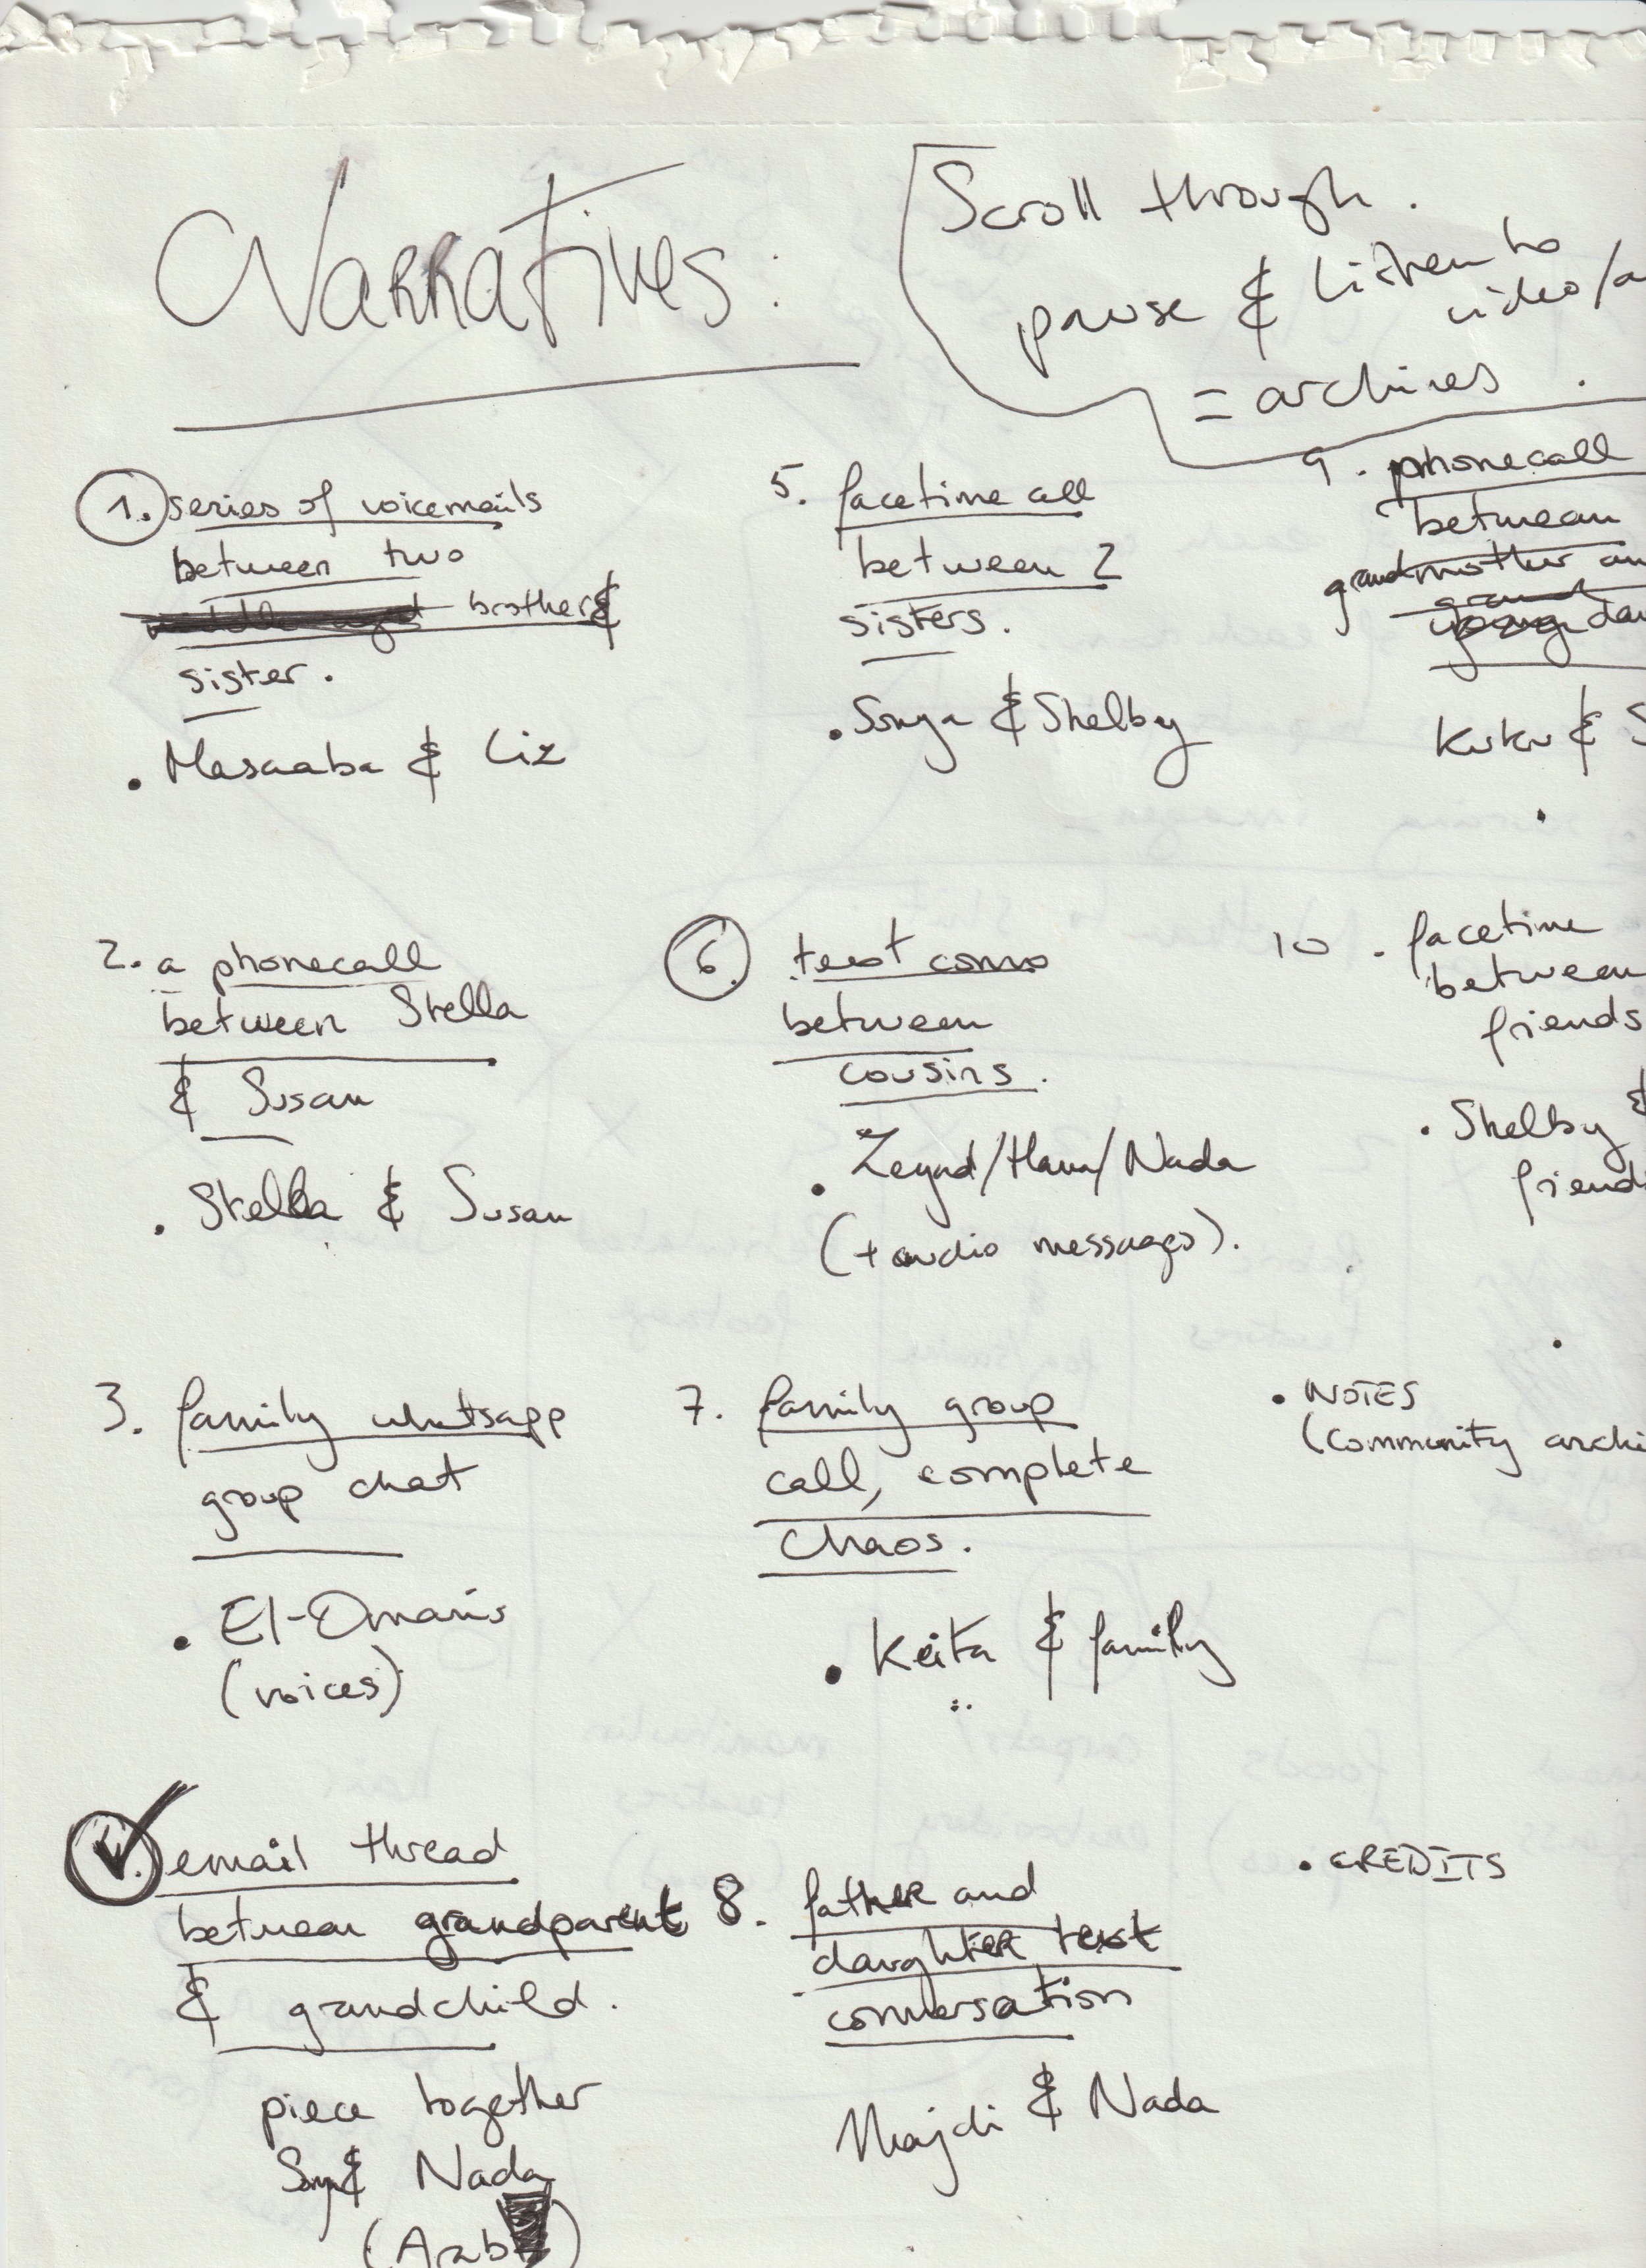 Narratives:
Scroll through.
pause & listen to
video/a
= archives.
1. series of voicemails
between two
brother &
sister.
• Masaaba & Liz
2. a phonecall
between Stella
& Susan
• Stella & Susan
3. family whatsapp
group chat
• El-Omaris
(voices)
email thread
between grandparent
& grandchild.
piece together
& Nada
5. facetime call
between 2
sisters.
• Sonya & Shelby
6. text convo
between
cousins.
• Zeyad/Hana/Nada
(+ audio messages).
7. family group
call, complete
chaos.
• Keita & family
8. father and
daughter text
conversation
Majdi & Nada
9. phonecall
between
grandmother an
dau
Kuku & S
10. facetime
between
friends
• Shelby &
friend
• NOTES
(community archi
• CREDITS